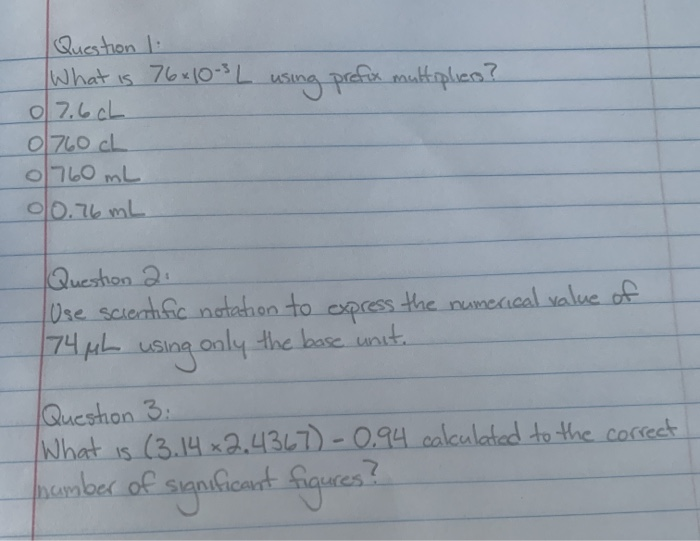 Question 1:
What is 76×10⁻³ L using prefix multipliers?
○ 7.6 cL
○ 760 cL
○ 760 mL
○ 0.76 mL
Question 2:
Use scientific notation to express the numerical value of
74 μL using only the base unit.
Question 3:
What is (3.14 × 2.4367) - 0.94 calculated to the correct
number of significant figures?